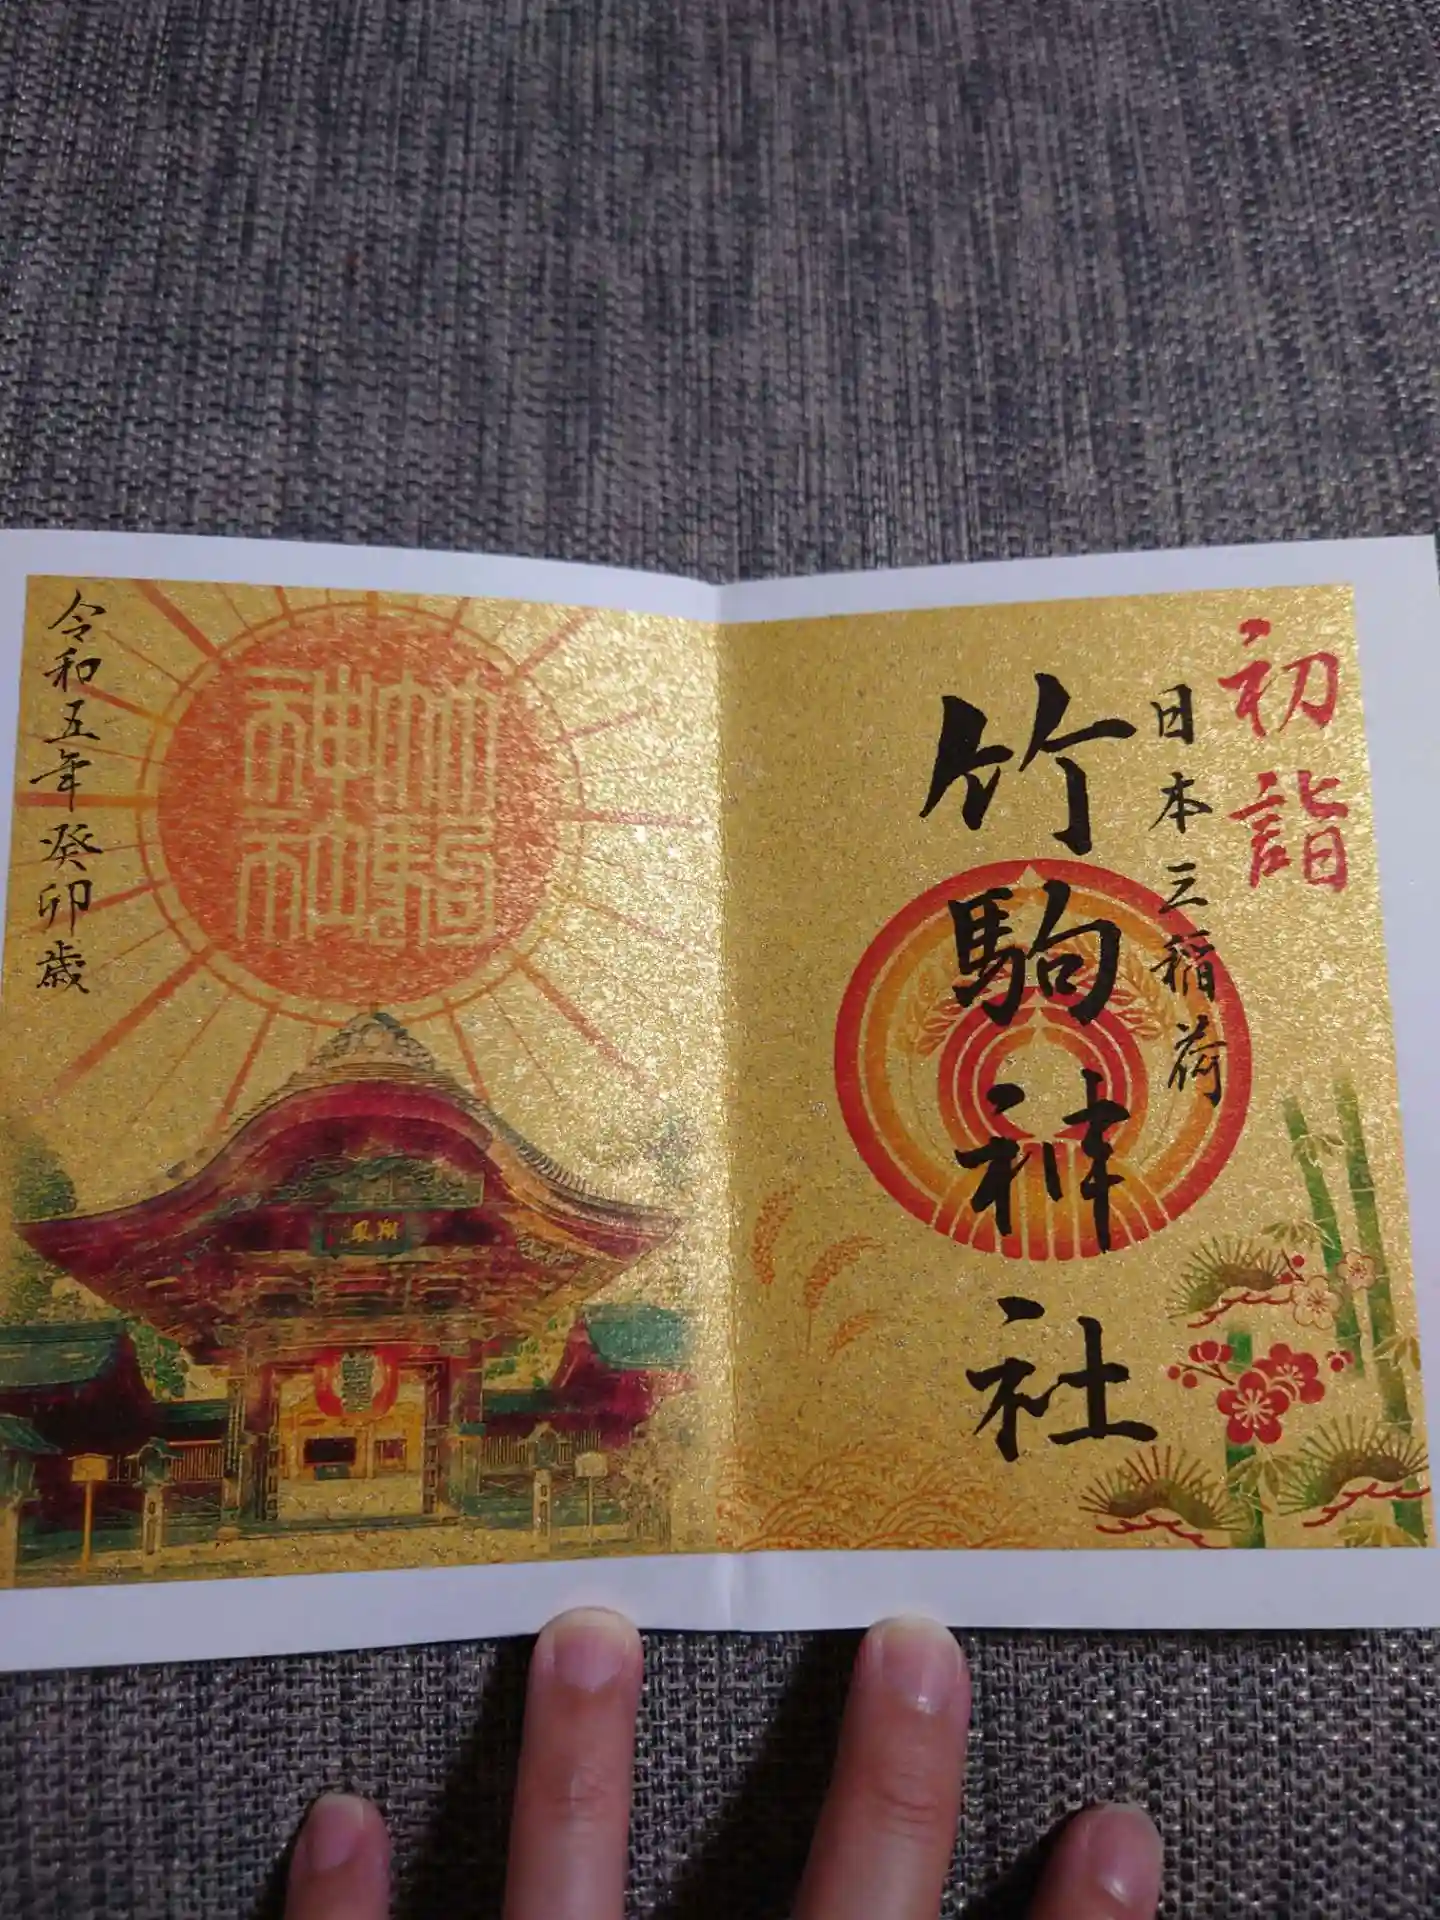 初詣
日本三稲荷
竹駒神社
令和五年癸卯歳
竹駒
神社
翔鳳